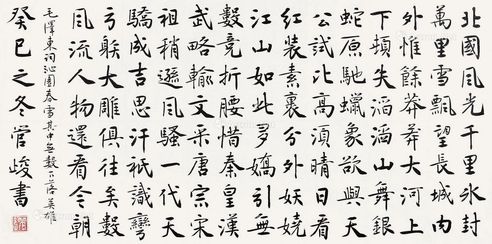 北國風光千里冰封
萬里雪飄望長城内
外惟餘莽莽大河上
下頓失滔滔山舞銀
蛇原馳蠟象欲與天
公試比高須晴日看
紅裝素裹分外妖嬈
江山如此多嬌引無
數竞折腰惜秦皇漢
武略輸文采唐宗宋
祖稍遜風騷一代天
驕成吉思汗祇識彎
弓䠶大雕俱往矣數
風流人物還看今朝
毛澤東詞沁園春雪其中無數下落英雄
癸巳之冬官峻書